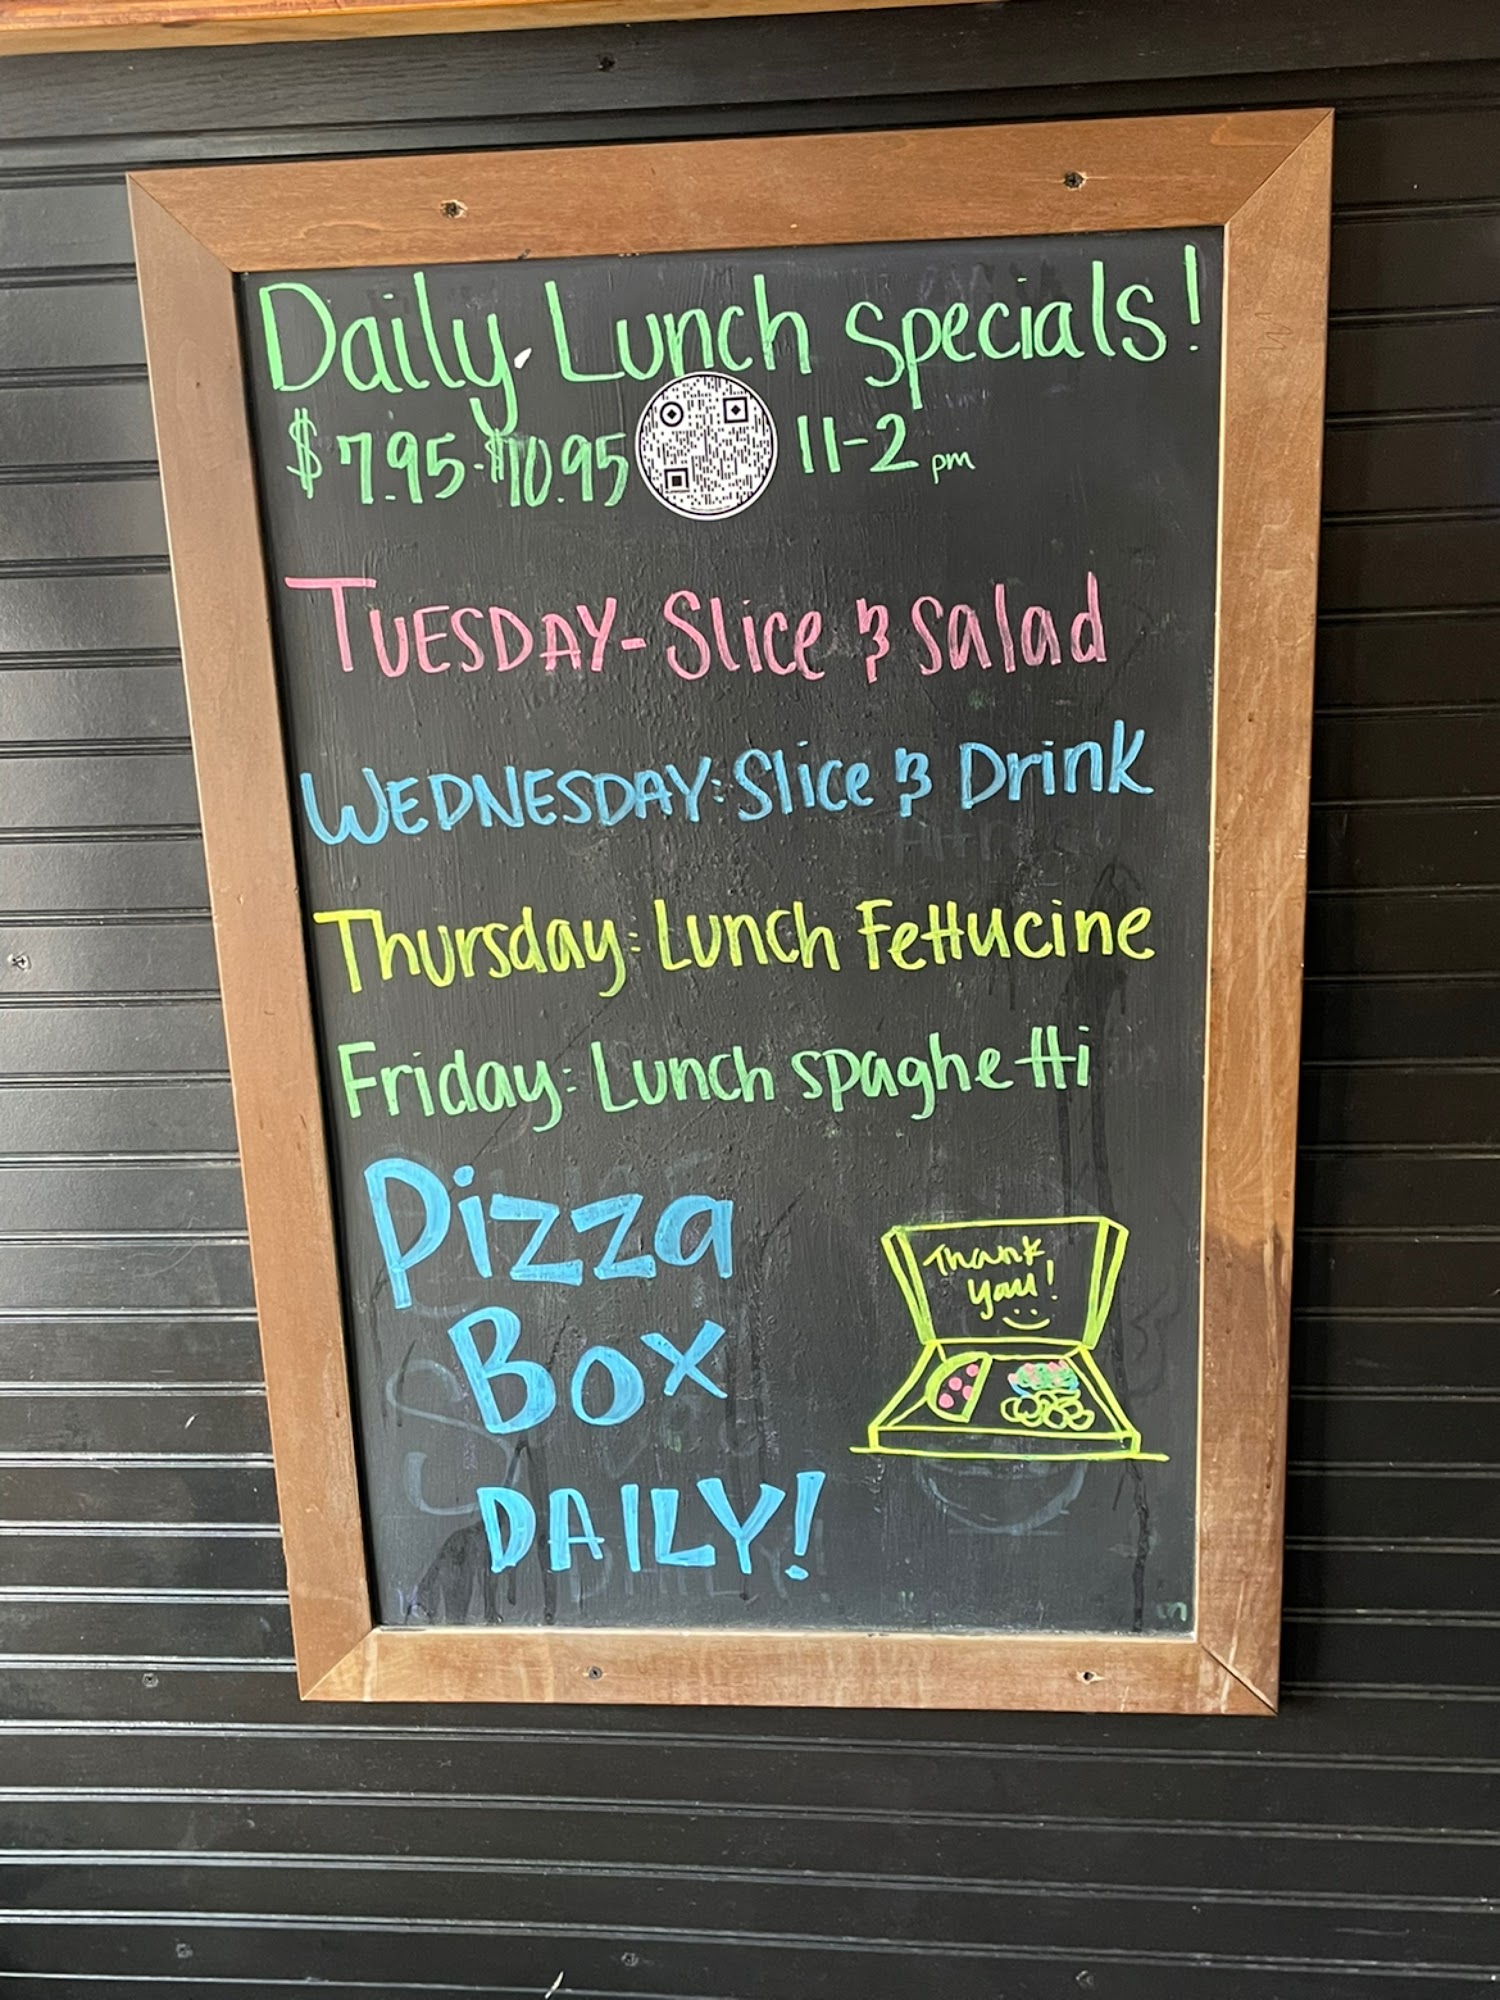 Daily Lunch specials!
$7.95-$10.95 11-2 pm
TUESDAY-Slice & salad
WEDNESDAY: Slice & Drink
Thursday: Lunch Fettucine
Friday: Lunch spaghetti
Pizza
Box
DAILY!
Thank
you!